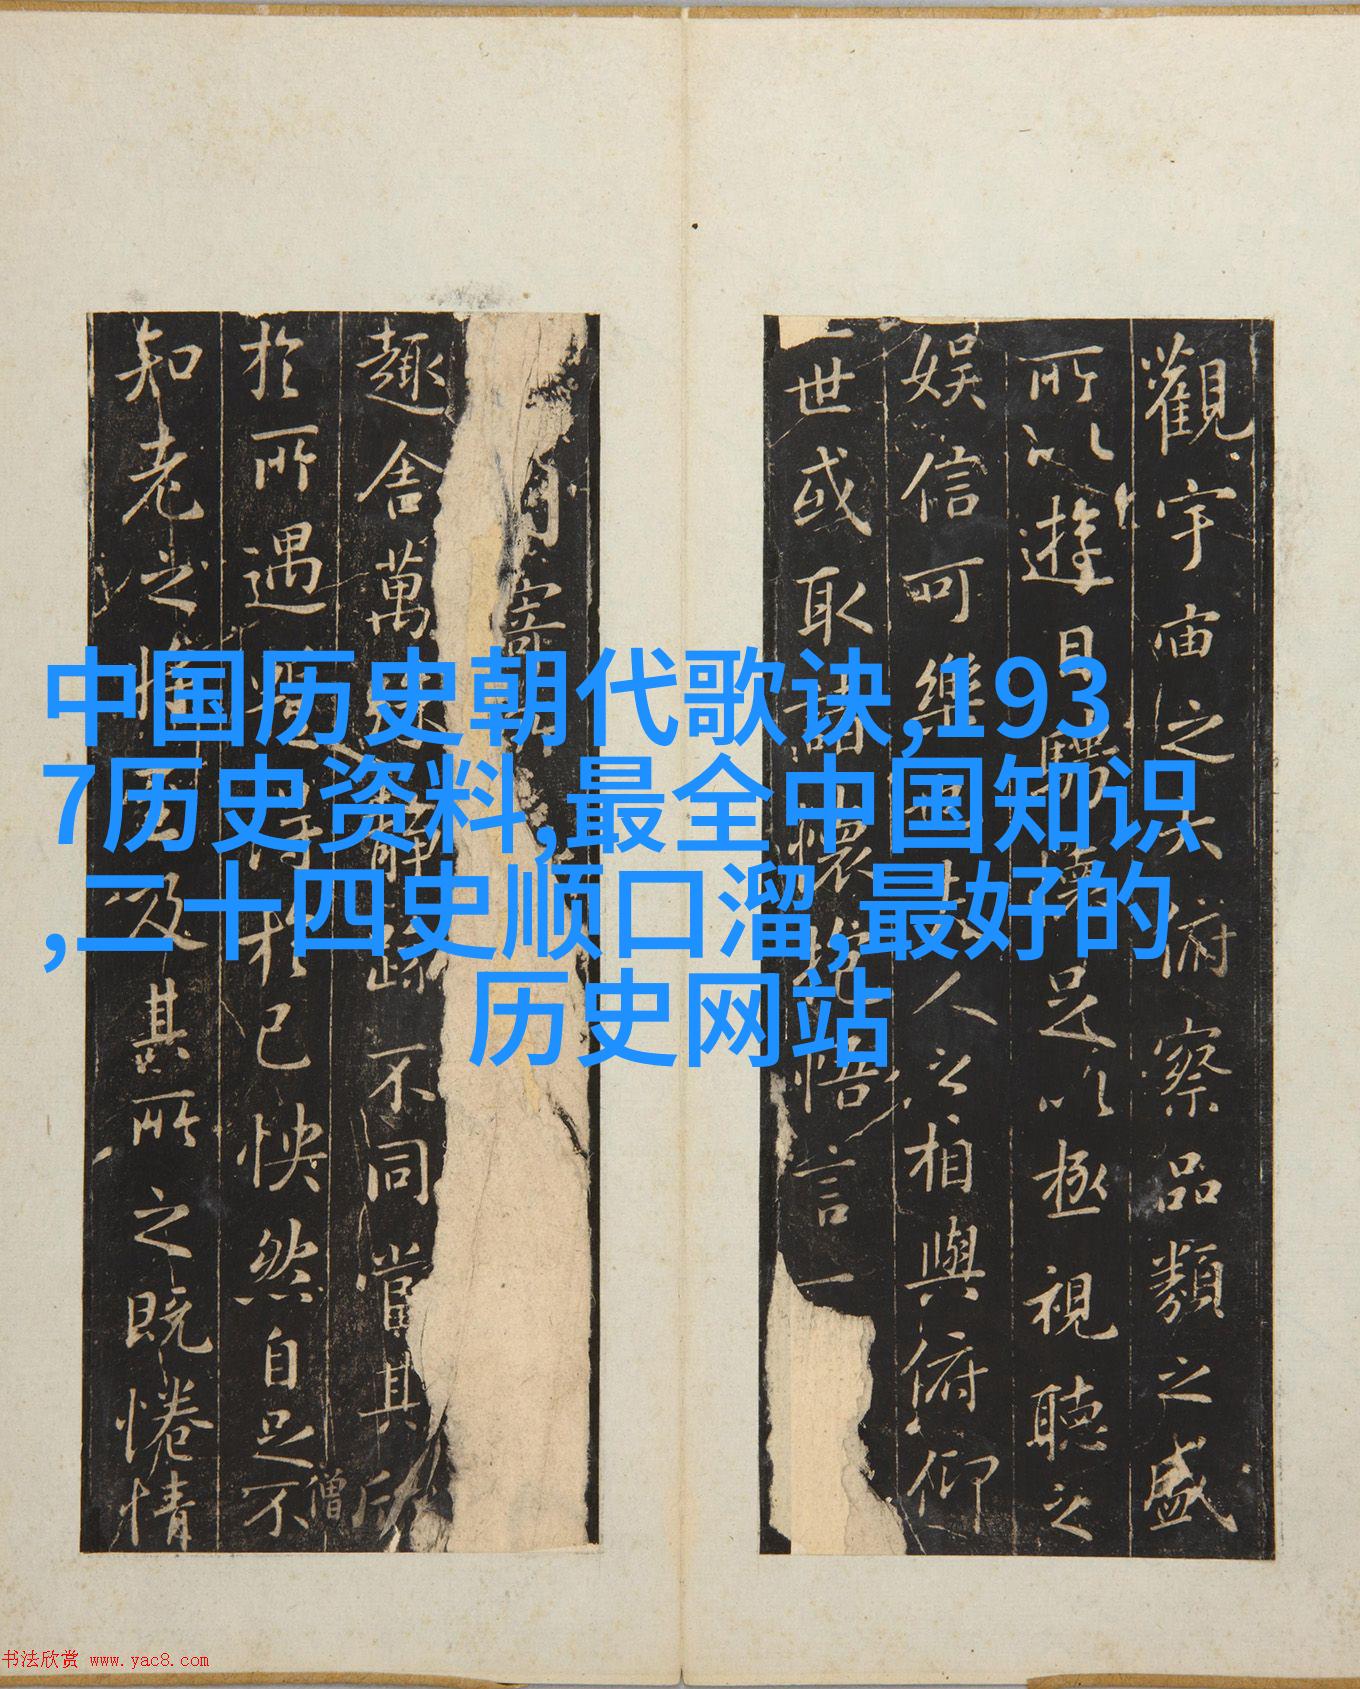 中国历史朝代歌诀,193
7历史资料,最全中国知识
,二十四史顺口溜,最好的
历史网站
觀宇宙之大俯察品類之盛
所以遊目騁懷足以極視聽之
娛信可樂也夫人之相與俯仰
一世或取諸懷抱悟言一
寄
趣舍萬殊靜躁不同當其欣
僧
於所遇暫得於己怏然自足不
知老之將至及其所之既惓情
书法欣赏 www.yac8.com